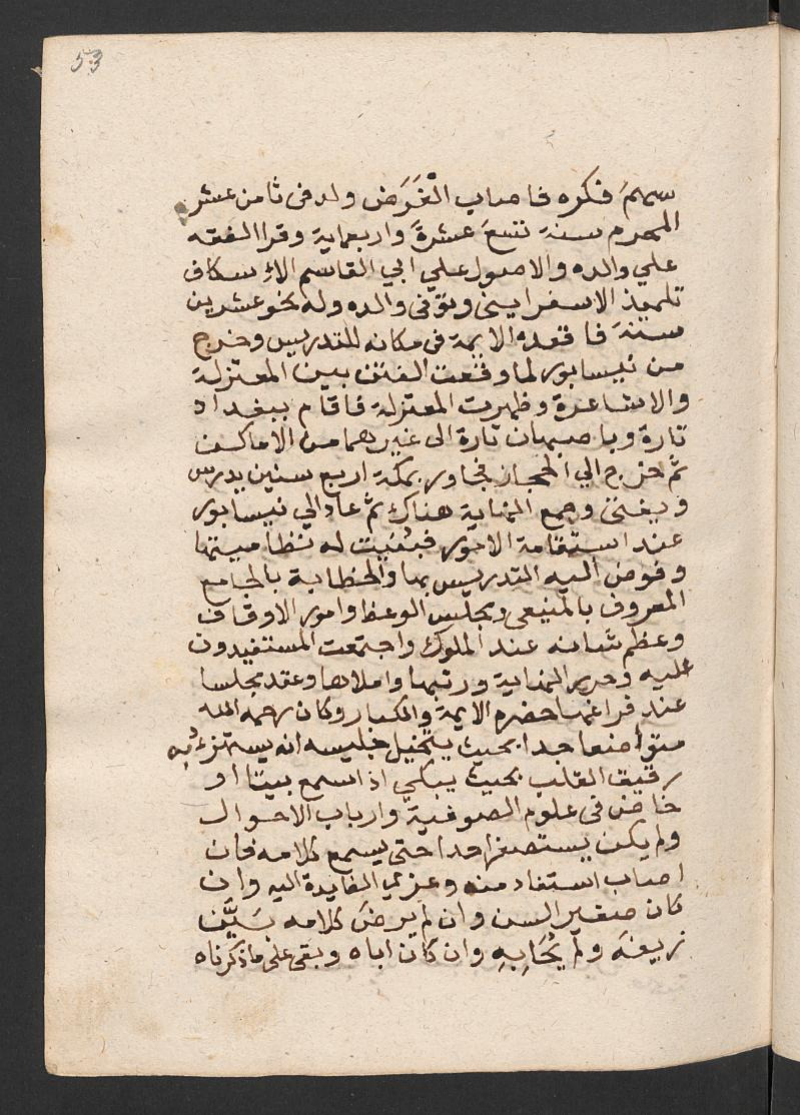 53
سهم فكره فاصاب الْغَرَض ولد فى ثامن عشر
المحرم سنة تسعَ عشرةَ واربعماية وقرا الفقه
علي والده والاصول علي ابي القاسم الاسكاف
تلميذ الاسفراينى وتوفى والده وله نحو عشرين
سنة فاقعده الايمة فى مكانه للتدريس وخرج
من نيسابور لما وقعت الفتن بين المعتزلة
والاشاعرة وظهرت المعتزلة فاقام ببغداد
تارة وباصبهان تارة الى غيرهما من الاماكن
ثم خرج الي الحجاز فجاور بمكة اربع سنين يدرس
ويفتى وجمع النهاية هناك ثم عاد الي نيسابور
عند استقامة الامور فبُنيت له نظاميتها
وفوض اليه التدريس بها والخطابة بالجامع
المعروف بالمنيعى ومجلس الوعظ وامور الاوقاف
وعظم شانه عند الملوك واجتمعت المستفيدون
عليه وحرير النهاية ورتبها واملاها وعقد مجلسا
عند فراغها حضره الايمة والكبار وكان رحمه الله
متواضعا جدا بحيث يتخيل جليسه انه يستهزءُ به
رقيق القلب بحيث يبكي اذا سمع بيتا او
خاض فى علوم الصوفية وارباب الاحوال
ولم يكن يستصغر احدا حتى يسمع كلامه فان
اصاب استفاد منه وعزي الفايدة اليه وان
كان صغير السن وان لم يرضَ كلامه بَيَّن
زيفهَ ولم يُحَابِهِ وان كان اباه وبقى على ما ذكرناه